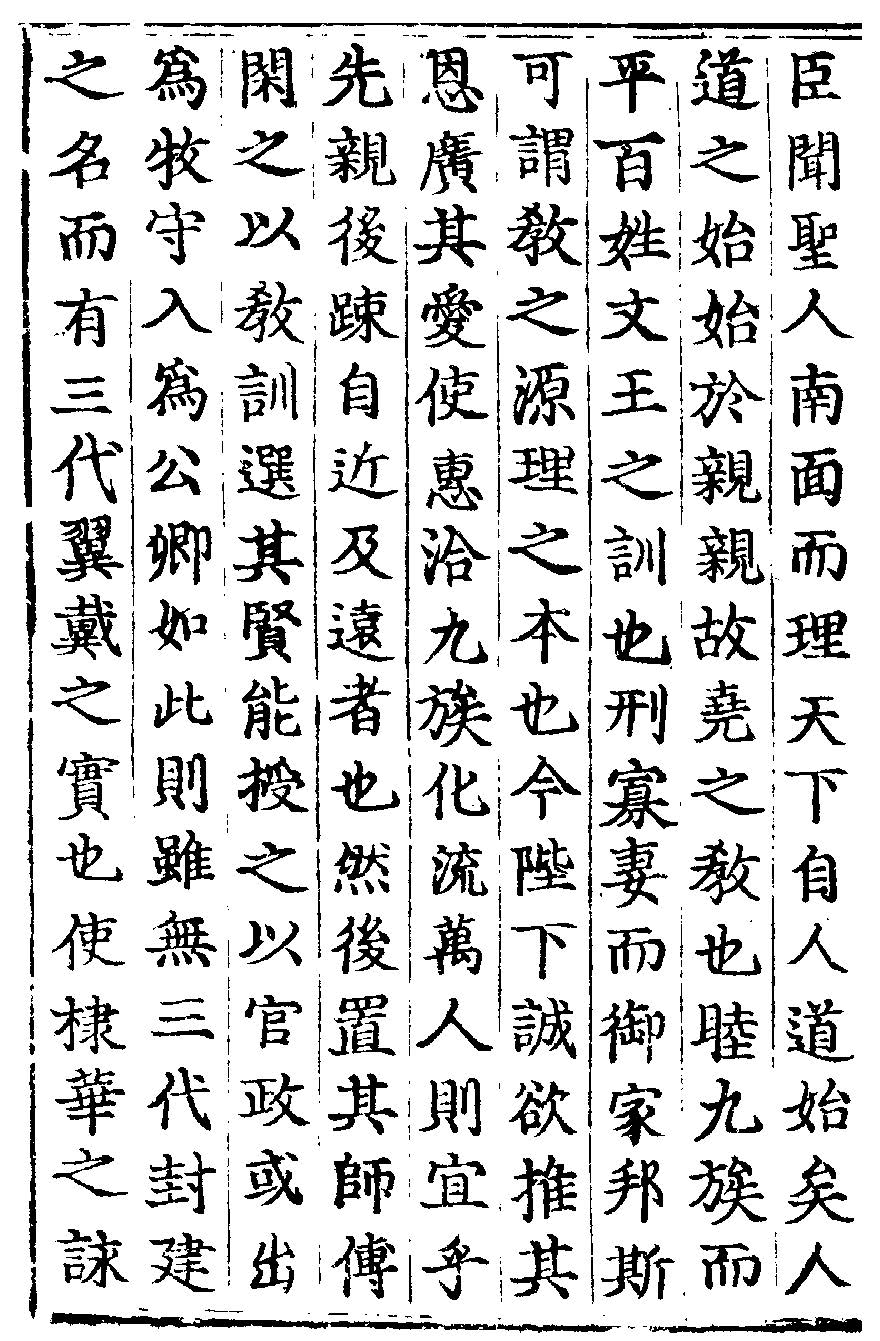 臣聞聖人南面而理天下自人道始矣人
道之始始於親親故堯之教也睦九族而
平百姓文王之訓也刑寡妻而御家邦斯
可謂教之源理之本也今陛下誠欲推其
恩廣其愛使惠洽九族化流萬人則宜乎
先親後踈自近及遠者也然後置其師傅
閑之以教訓選其賢能授之以官政或出
為牧守入為公卿如此則雖無三代封建
之名而有三代翼戴之實也使棣華之詠